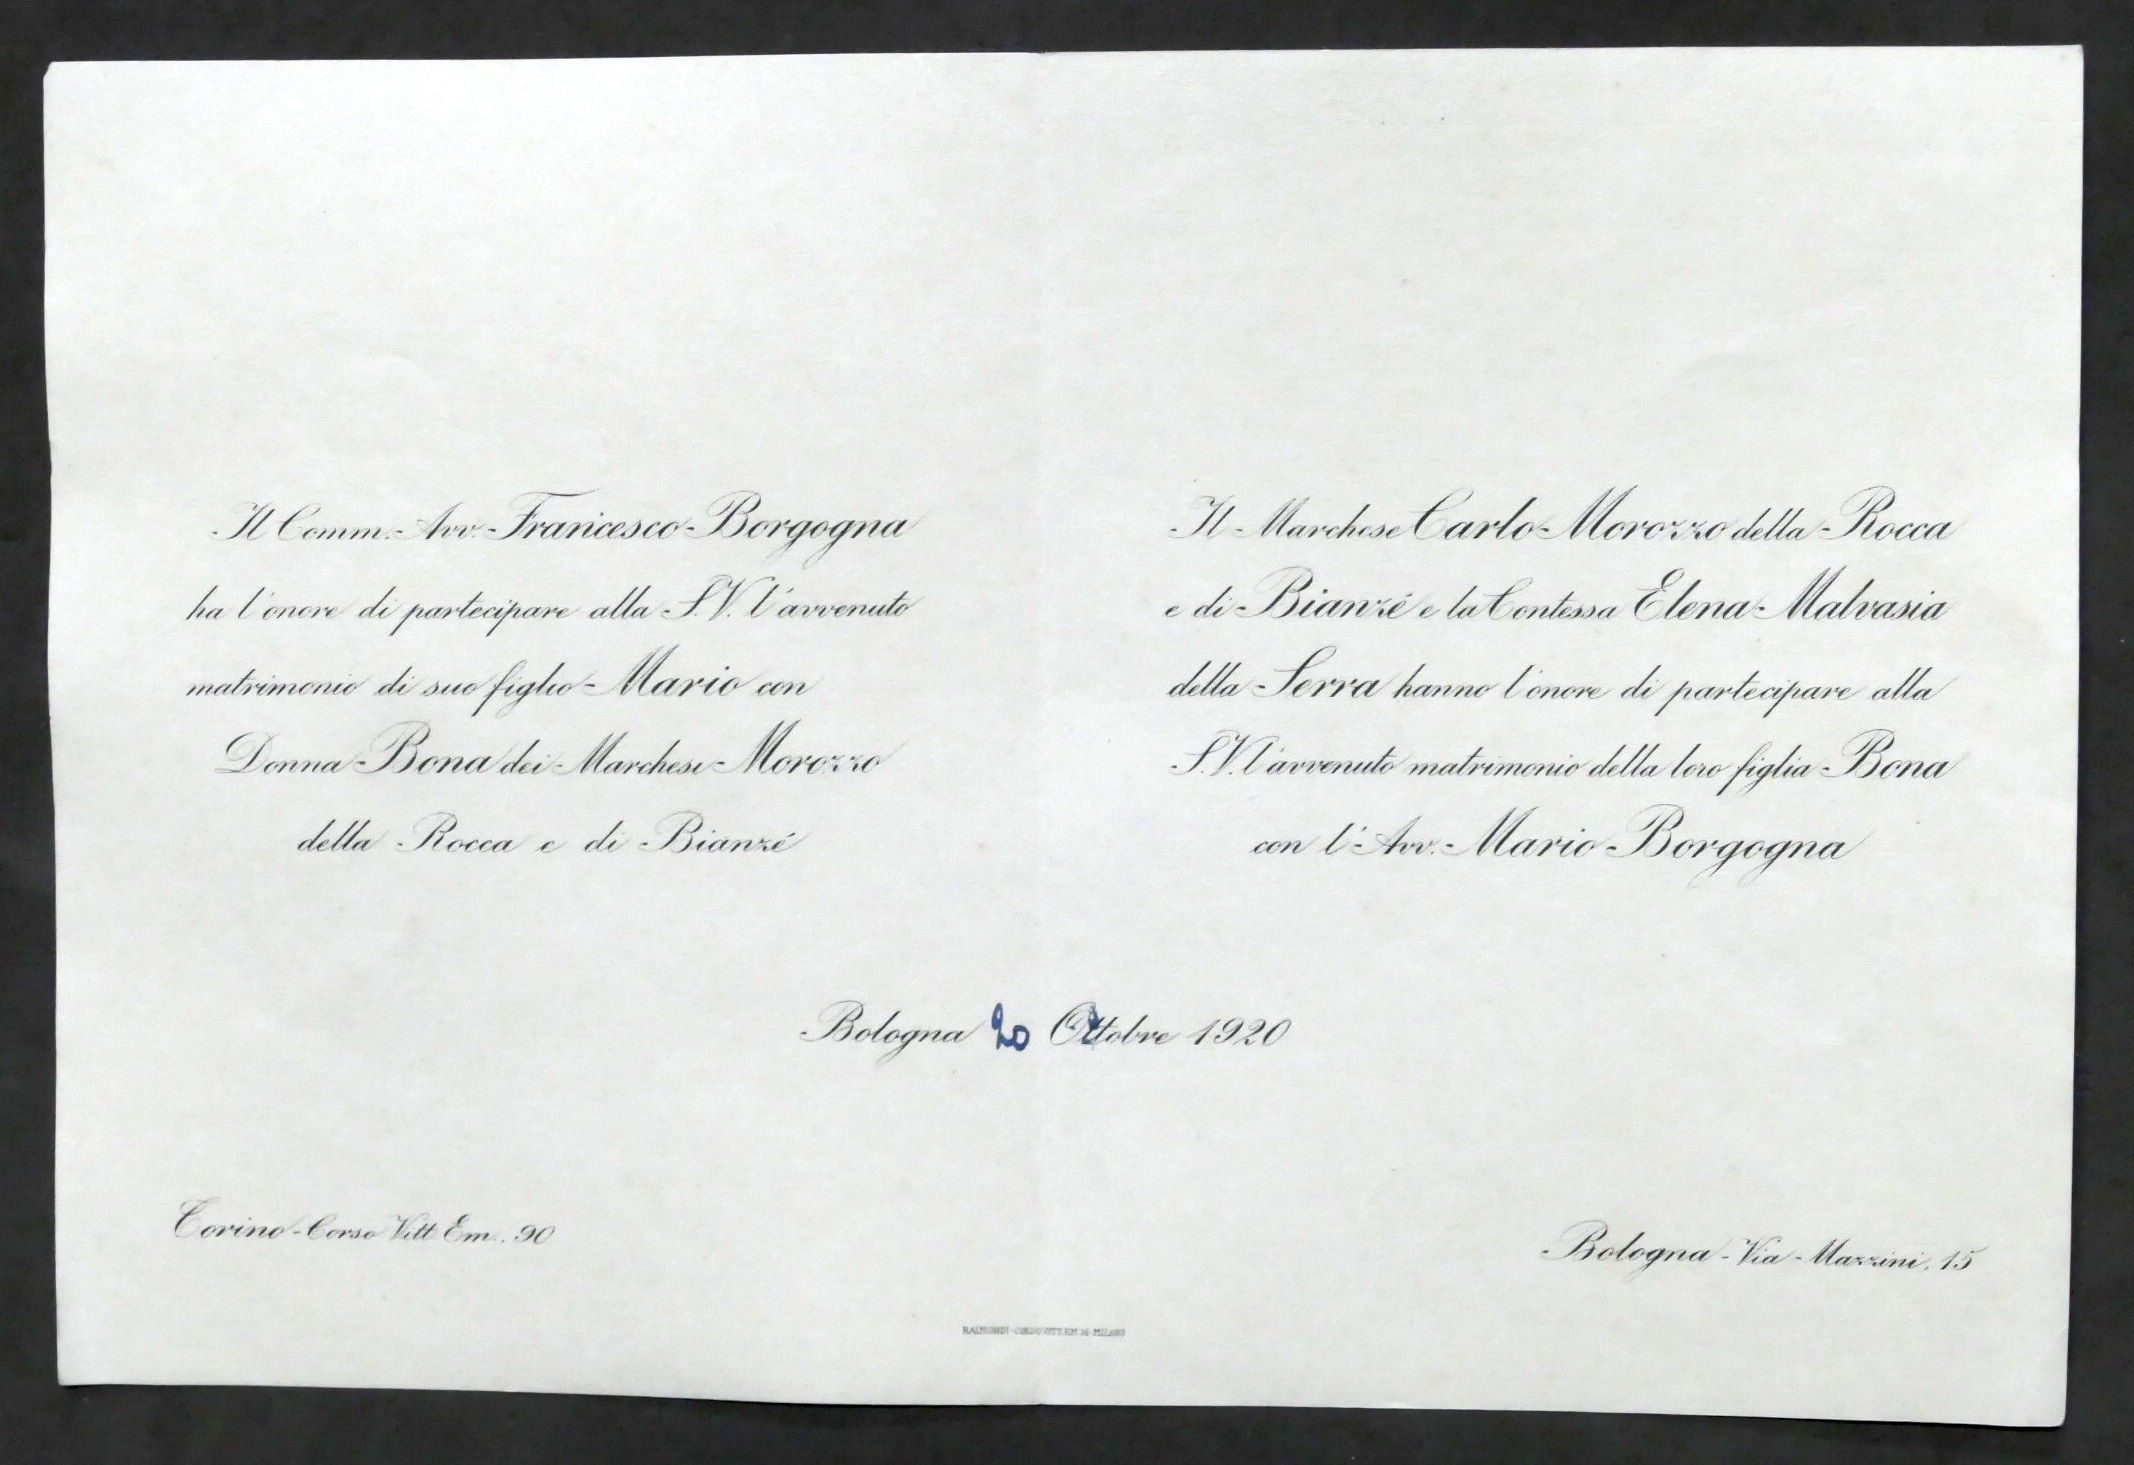 Il Comm. Avv. Francesco Borgogna
ha l'onore di partecipare alla S.V. l'avvenuto
matrimonio di suo figlio Mario con
Donna Bona dei Marchesi Morozzo
della Rocca e di Bianzé
Il Marchese Carlo Morozzo della Rocca
e di Bianzé e la Contessa Elena Malvasia
della Serra hanno l'onore di partecipare alla
S.V. l'avvenuto matrimonio della loro figlia Bona
con l'Avv. Mario Borgogna
Bologna 20 Ottobre 1920
Torino - Corso Vitt. Em. 90
Bologna - Via Mazzini, 15
RAIMONDI - CORSO VITT. EM. 36 - MILANO